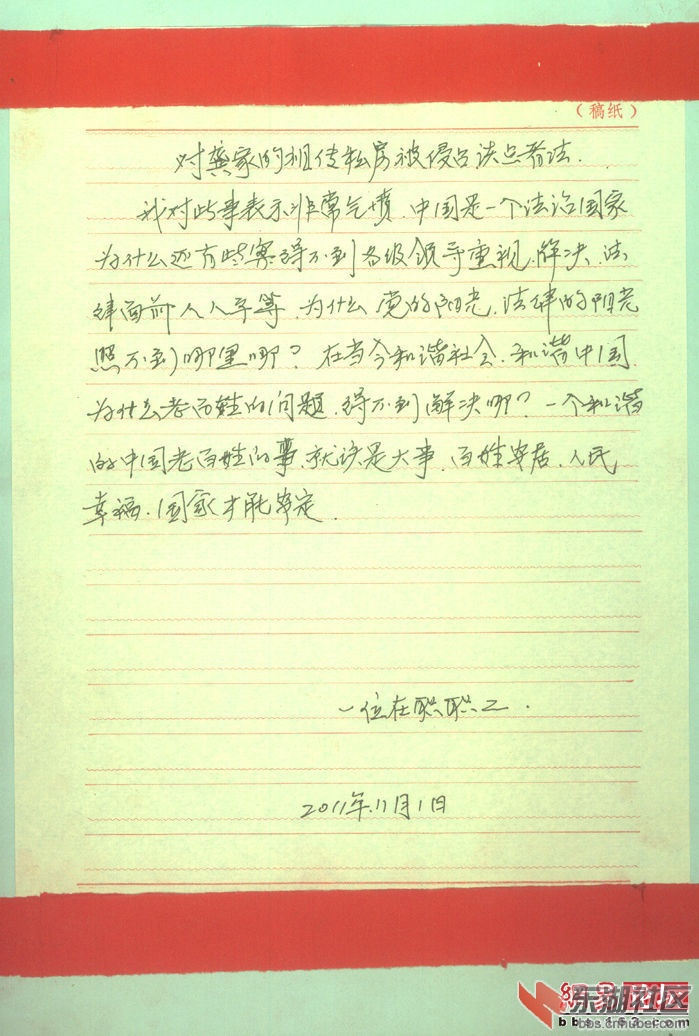 （稿纸）
对龚家的祖传私房被侵占谈点看法.
我对此事表示非常气愤.中国是一个法治国家
为什么还有些案得不到各级领导重视.解决.法
律面前人人平等.为什么党的阳光.法律的阳光
照不到哪里哪?在当今和谐社会.和谐中国.
为什么老百姓的问题.得不到解决哪?一个和谐
的中国老百姓的事.就该是大事.百姓安居.人民
幸福.国家才能安定.
一位在职职工.
2011年.11月1日
东湖社区
bbs.cnhubei.com